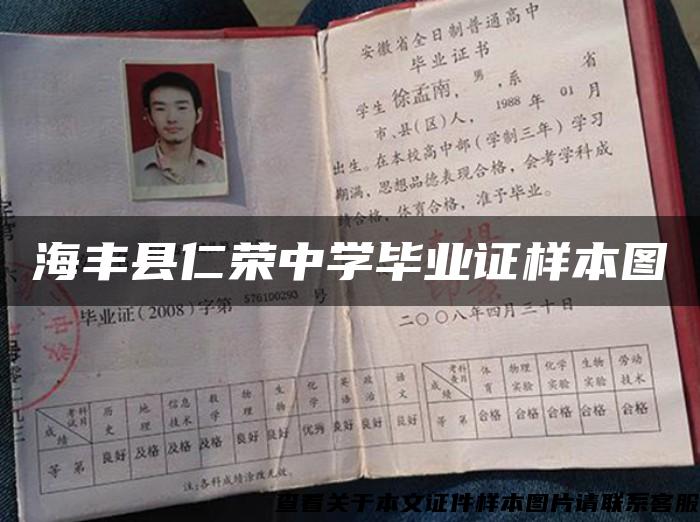 安徽省全日制普通高中
毕业证书
学生徐孟南，男，系 省
市、县(区)人，1988年01月
出生。在本校高中部(学制三年)学习
期满，思想品德表现合格，会考学科成
绩合格，体育合格，准予毕业。
海丰县仁荣中学毕业证样本图
毕业证(2008)字第 576100293 号
二〇〇八年四月三十日
考试科目 历史 地理 信息技术 数学 物理 生物 化学 英语 政治 语文
成绩
等第 良好 及格 及格 及格 良好 良好 优秀 良好 良好 良好
注:各科成绩涂改无效。
考查科目 体育 物理实验 化学实验 生物实验 劳动技术
成绩
等第 合格 合格 合格 合格 合格
查看关于本文证件样本图片请联系客服